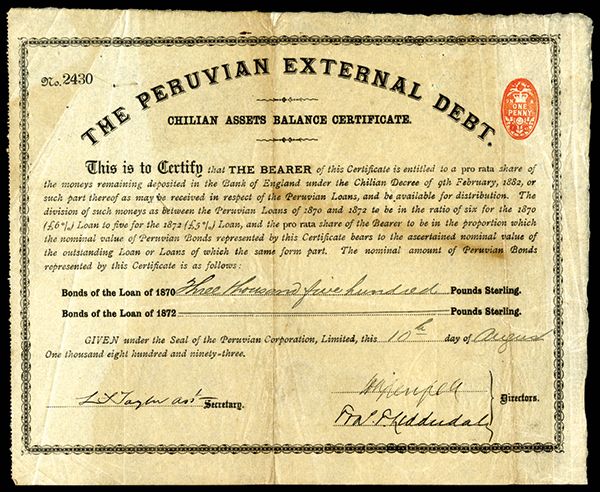 No. 2430
THE PERUVIAN EXTERNAL DEBT.
ONE
PENNY
CHILIAN ASSETS BALANCE CERTIFICATE.
This is to Certify that THE BEARER of this Certificate is entitled to a pro rata share of
the moneys remaining deposited in the Bank of England under the Chilian Decree of 9th February, 1882, or
such part thereof as may be received in respect of the Peruvian Loans, and be available for distribution. The
division of such moneys as between the Peruvian Loans of 1870 and 1872 to be in the ratio of six for the 1870
(£6°/₀) Loan to five for the 1872 (£5°/₀) Loan, and the pro rata share of the Bearer to be in the proportion which
the nominal value of Peruvian Bonds represented by this Certificate bears to the ascertained nominal value of
the outstanding Loan or Loans of which the same form part. The nominal amount of Peruvian Bonds
represented by this Certificate is as follows:
Bonds of the Loan of 1870 Three thousand five hundred Pounds Sterling.
Bonds of the Loan of 1872 Pounds Sterling.
GIVEN under the Seal of the Peruvian Corporation, Limited, this 10th day of August
One thousand eight hundred and ninety-three.
Taylor
Secretary.
Directors.